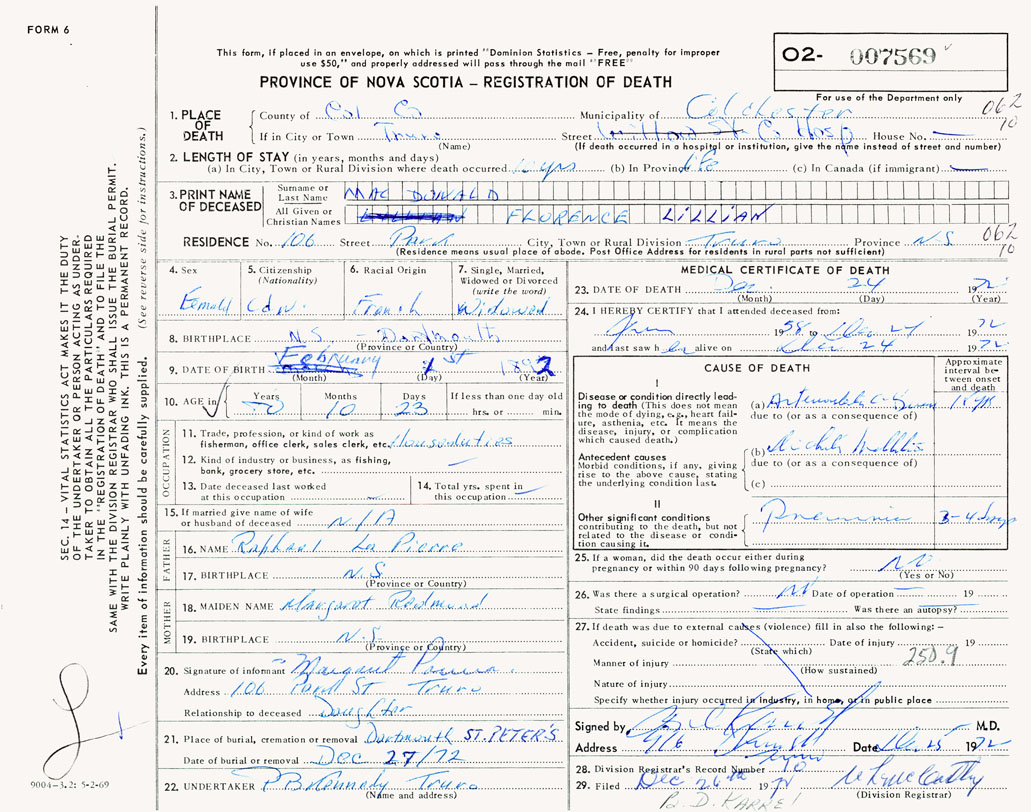 FORM 6
This form, if placed in an envelope, on which is printed "Dominion Statistics – Free, penalty for improper
use $50," and properly addressed will pass through the mail "FREE"
PROVINCE OF NOVA SCOTIA – REGISTRATION OF DEATH
O2- 007569
For use of the Department only
062
10
1. PLACE OF DEATH
County of Col Co Municipality of Colchester
If in City or Town Truro Street Co Hosp House No. —
(Name) (If death occurred in a hospital or institution, give the name instead of street and number)
2. LENGTH OF STAY (in years, months and days)
(a) In City, Town or Rural Division where death occurred yrs (b) In Province life (c) In Canada (if immigrant) —
3. PRINT NAME OF DECEASED
Surname or Last Name MAC DONALD
All Given or Christian Names FLORENCE LILLIAN
RESIDENCE No. 106 Street Park City, Town or Rural Division Truro Province N.S.
062
10
(Residence means usual place of abode. Post Office Address for residents in rural parts not sufficient)
4. Sex
Female
5. Citizenship
(Nationality)
Cdn.
6. Racial Origin
French
7. Single, Married, Widowed or Divorced
(write the word)
Widowed
8. BIRTHPLACE N.S. – Dartmouth
(Province or Country)
9. DATE OF BIRTH February 1st 1892
(Month) (Day) (Year)
10. AGE in Years Months Days If less than one day old
80 10 23 hrs. or min.
OCCUPATION
11. Trade, profession, or kind of work as
fisherman, office clerk, sales clerk, etc. Houseduties
12. Kind of industry or business, as fishing,
bank, grocery store, etc. —
13. Date deceased last worked
at this occupation —
14. Total yrs. spent in
this occupation —
15. If married give name of wife
or husband of deceased N/A
FATHER
16. NAME Raphael La Pierre
17. BIRTHPLACE N.S.
(Province or Country)
MOTHER
18. MAIDEN NAME Margaret Redmond
19. BIRTHPLACE N.S.
(Province or Country)
20. Signature of informant Margaret
Address 106 Park St Truro
Relationship to deceased Daughter
21. Place of burial, cremation or removal Dartmouth ST. PETER'S
Date of burial or removal Dec 27/72
22. UNDERTAKER P B Kennedy Truro
(Name and address)
MEDICAL CERTIFICATE OF DEATH
23. DATE OF DEATH Dec 24 1972
(Month) (Day) (Year)
24. I HEREBY CERTIFY that I attended deceased from:
1958 to Dec 24 1972
and last saw her alive on Dec 24 1972
CAUSE OF DEATH
Approximate interval between onset and death
I
Disease or condition directly leading to death (This does not mean
the mode of dying, e.g., heart failure, asthenia, etc. It means the
disease, injury, or complication
which caused death.)
(a)
due to (or as a consequence of)
Antecedent causes
Morbid conditions, if any, giving
rise to the above cause, stating
the underlying condition last.
(b) Mellitis
due to (or as a consequence of)
(c)
II
Other significant conditions
contributing to the death, but not
related to the disease or condition causing it.
Pneumonia 3-4 days
25. If a woman, did the death occur either during
pregnancy or within 90 days following pregnancy? NO
(Yes or No)
26. Was there a surgical operation? No Date of operation — 19
State findings — Was there an autopsy? —
27. If death was due to external causes (violence) fill in also the following: –
Accident, suicide or homicide? Date of injury 19
(State which)
Manner of injury 250.9
(How sustained)
Nature of injury
Specify whether injury occurred in industry, in home, or in public place
Signed by M.D.
Address Date Dec 25 1972
28. Division Registrar's Record Number 10
29. Filed Dec 26th 1972
(Division Registrar)
SEC. 14 – VITAL STATISTICS ACT MAKES IT THE DUTY
OF THE UNDERTAKER OR PERSON ACTING AS UNDERTAKER TO OBTAIN ALL THE PARTICULARS REQUIRED
IN THE "REGISTRATION OF DEATH" AND TO FILE THE
SAME WITH THE DIVISION REGISTRAR WHO SHALL ISSUE THE BURIAL PERMIT.
WRITE PLAINLY WITH UNFADING INK. THIS IS A PERMANENT RECORD.
Every item of information should be carefully supplied. (See reverse side for instructions.)
9004-3.2: 5-2-69